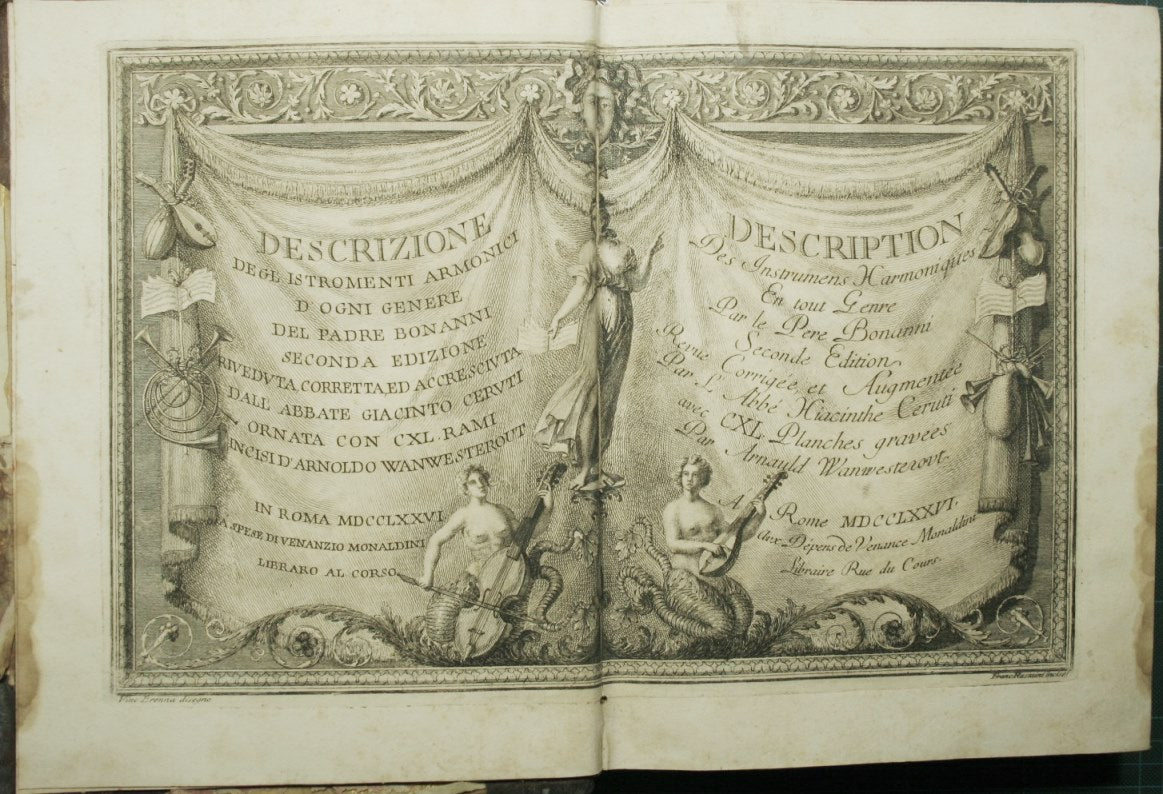 DESCRIZIONE
DEGL ISTROMENTI ARMONICI
D'OGNI GENERE
DEL PADRE BONANNI
SECONDA EDIZIONE
RIVEDVTA, CORRETTA, ED ACCRESCIVTA
DALL ABBATE GIACINTO CERUTI
ORNATA CON CXL. RAMI
INCISI D'ARNOLDO WANWESTEROUT
IN ROMA MDCCLXXVI.
A SPESE DI VENANZIO MONALDINI
LIBRARO AL CORSO.
DESCRIPTION
Des Instrumens Harmoniques
En tout Genre
Par le Pere Bonanni
Seconde Edition
Revue Corrigée, et Augmentée
Par L'Abbé Hiacinthe Ceruti
avec CXL Planches gravées
Par Arnauld Wanwesterout.
A Rome MDCCLXXVI.
Aux Dépens de Venance Monaldini
Libraire Rue du Cours.
Vinc Brenna disegnò
Franc incise